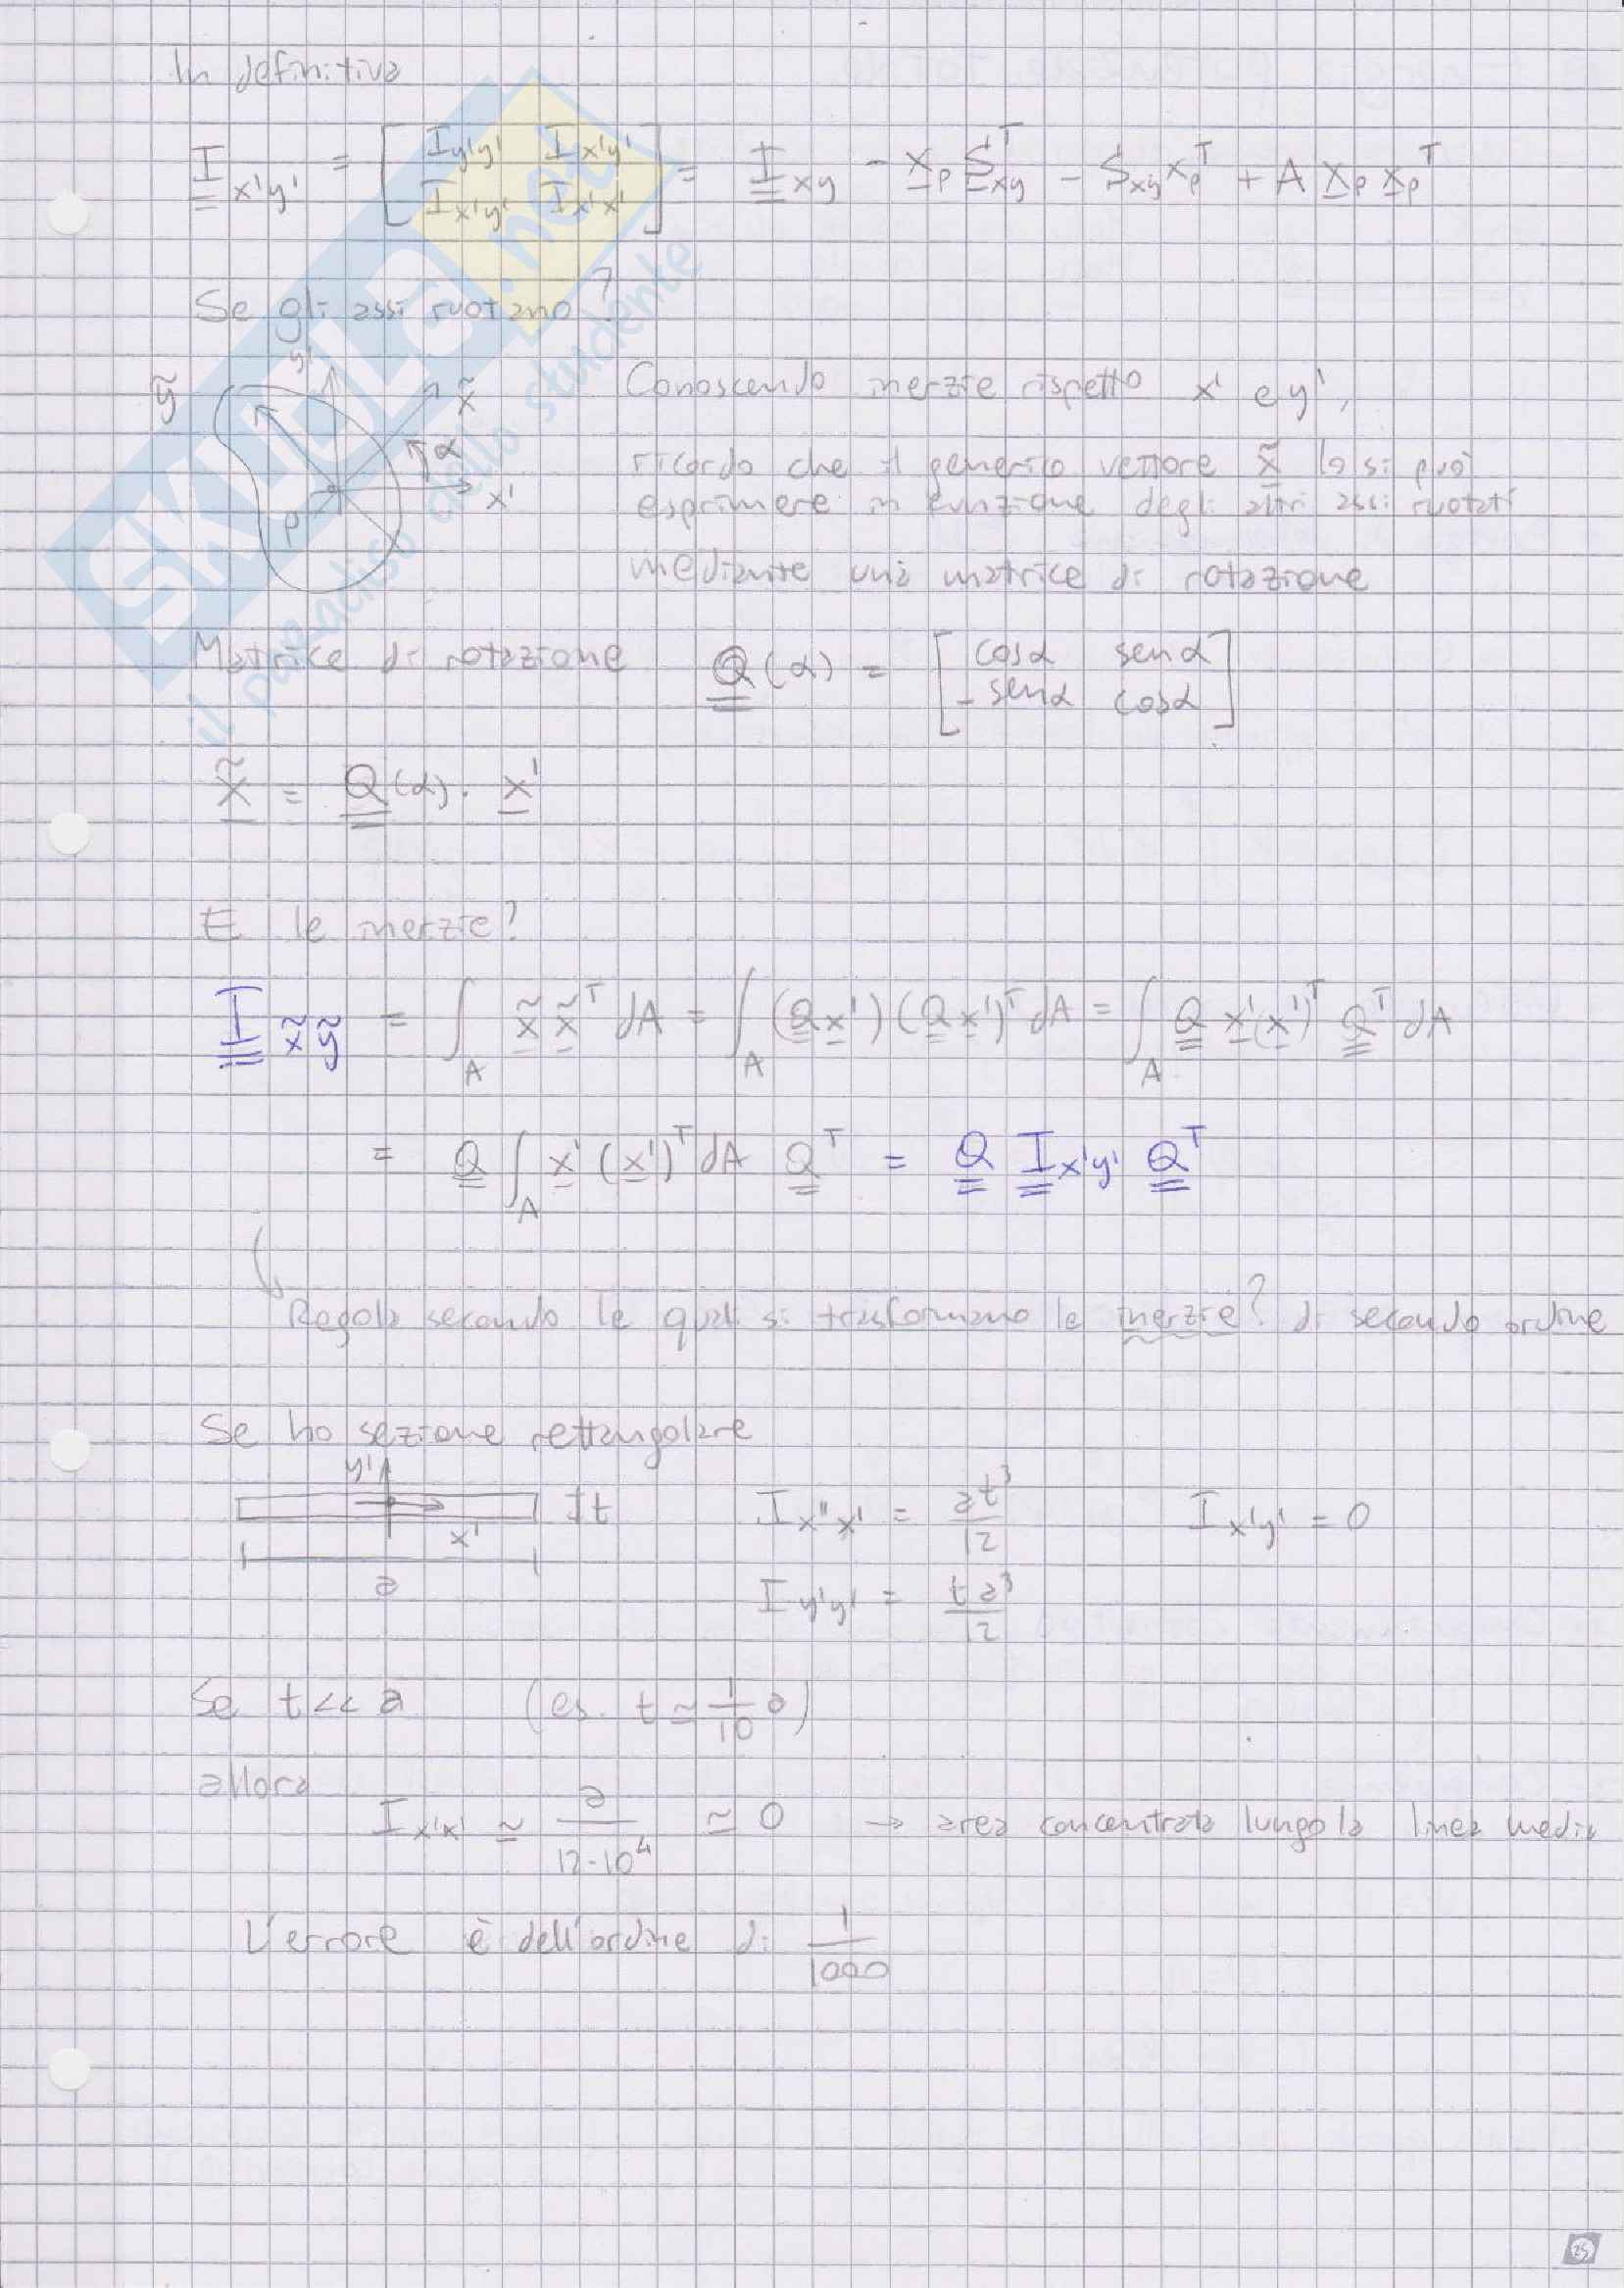 In definitiva
I x'y' = [ Iy'y' Ix'y' ; Ix'y' Ix'x' ] = I xy - xp Sxy^T - Sxy xp^T + A xp xp^T
Se gli assi ruotano?
ỹ y' x̃ α x' P
Conoscendo inerzie rispetto x' e y',
ricordo che il generico vettore x̃ lo si può
esprimere in funzione degli altri assi ruotati
mediante una matrice di rotazione
Matrice di rotazione Q(α) = [ cosα senα ; -senα cosα ]
x̃ = Q(α) · x'
E le inerzie?
I x̃ỹ = ∫A x̃ x̃^T dA = ∫A (Q x') (Q x')^T dA = ∫A Q x'(x')^T Q^T dA
= Q ∫A x' (x')^T dA Q^T = Q I x'y' Q^T
Regola secondo le quali si trasformano le inerzie? di secondo ordine
Se ho sezione rettangolare
y' x' t a
Ix''x' = at³/12 Ix'y' = 0
Iy'y' = ta³/12
Se t << a (es. t ≃ 1/10 a)
allora
Ix'x' ≃ a/12·10⁴ ≃ 0 → area concentrata lungo la linea media
L'errore è dell'ordine di 1/1000
SKUOLA.net
il paradiso dello studente
25